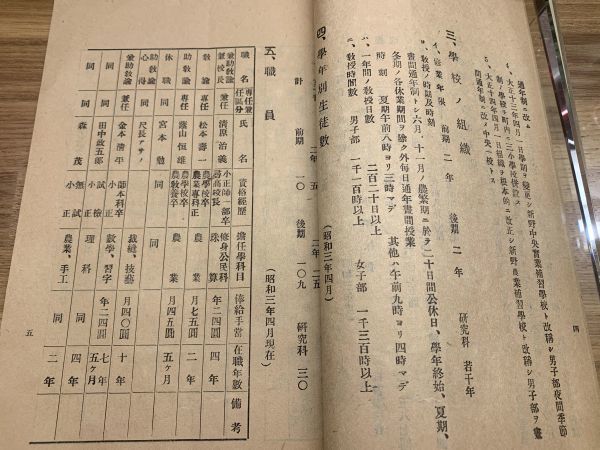 通年制ニ改ム
4、大正十三年四月一日學則ヲ變更シ新野中央實業補習學校ト改稱シ男子部夜間季節
制ノ學校トシ町內ニ三小學校併設ス
5、大正十四年四月一日組織ヲ根本的ニ改正シ新野農業補習學校ト改稱シ男子部ヲ晝
間通年制ニ改メ中央一校トス
三、學校ノ組織
イ、修業年限　前期　二年　後期　二年　研究科　若干年
ロ、敎授ノ時期及時刻
晝間通年制トシ六月十一月ノ農繁期ニ於テ二十日間公休日、學年終始、夏期、
冬期ノ各休業期間ヲ除ク外每日通年晝間授業
時刻　夏期午前八時ヨリ三時マデ　其他ハ午前九時ヨリ四時マデ
ハ、一年間ノ敎授日數　二百二十日以上
ニ、敎授時間數　男子部　一千一百時以上　女子部　一千三百時以上
四、學年別生徒數　（昭和三年四月）
二年　五　二年　二五
計　前期　一〇　後期　一〇九　研究科　三〇
五、職員　（昭和三年四月現在）
職名　專任兼任區分　氏名　資格經歷　擔任學科目　俸給手當　在職年數　備考
兼校長助敎諭　兼任　淸原治義　小正師一部卒　修身公民科　年二四圓　四年
敎諭　專任　松本壽一　農學校卒　農業專科正　農業　月七五圓　二年
助敎諭　專任　蔭山恒雄　農學校卒　農敎養卒　農業　月四五圓　五ヶ月
休職　同　宮本勉　同
助敎諭心得　同　尺長アサノ　裁縫、技藝　月四〇圓　十年
兼助敎諭　兼任　金本淸平　師本科卒　小正　數學、習字　年二四圓　七年
同　同　田中政五郞　試檢　小正　理科　五ヶ月　四年
同　同　森茂　無試　小正　農業、手工　同　二年
四
五